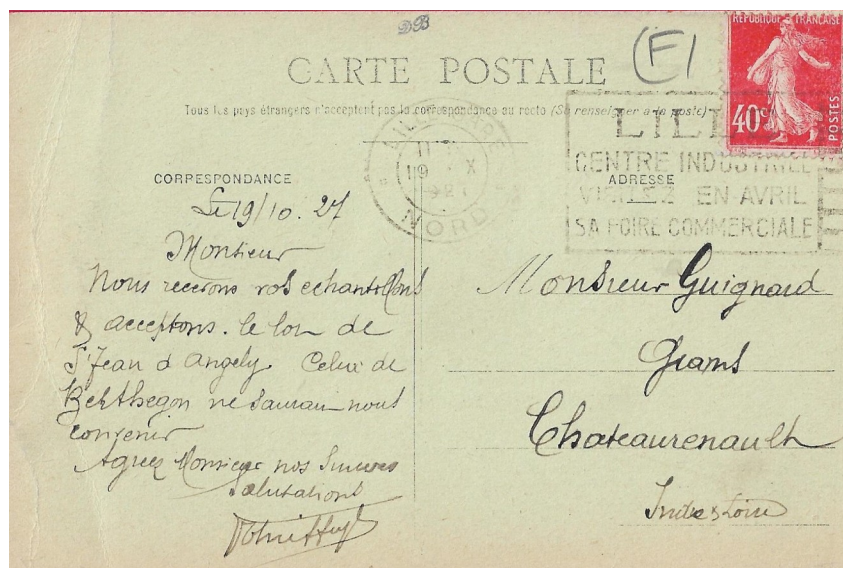 DB
(F)
CARTE POSTALE
Tous les pays étrangers n'acceptent pas la correspondance au recto (Se renseigner à la poste)
REPUBLIQUE FRANÇAISE
40c
POSTES
LILLE
19 X
NORD
LILLE
CENTRE INDUSTRIEL
VISITEZ EN AVRIL
SA FOIRE COMMERCIALE
CORRESPONDANCE
Le 19/10.27
Monsieur
Nous recevons vos echantillons
& acceptons le lot de
St Jean d Angely. Celui de
Berthegon ne saurait nous
convenir
Agreez Monsieur nos sinceres
salutations
ADRESSE
Monsieur Guignard
Grains
Chateaurenault
Indre & Loire